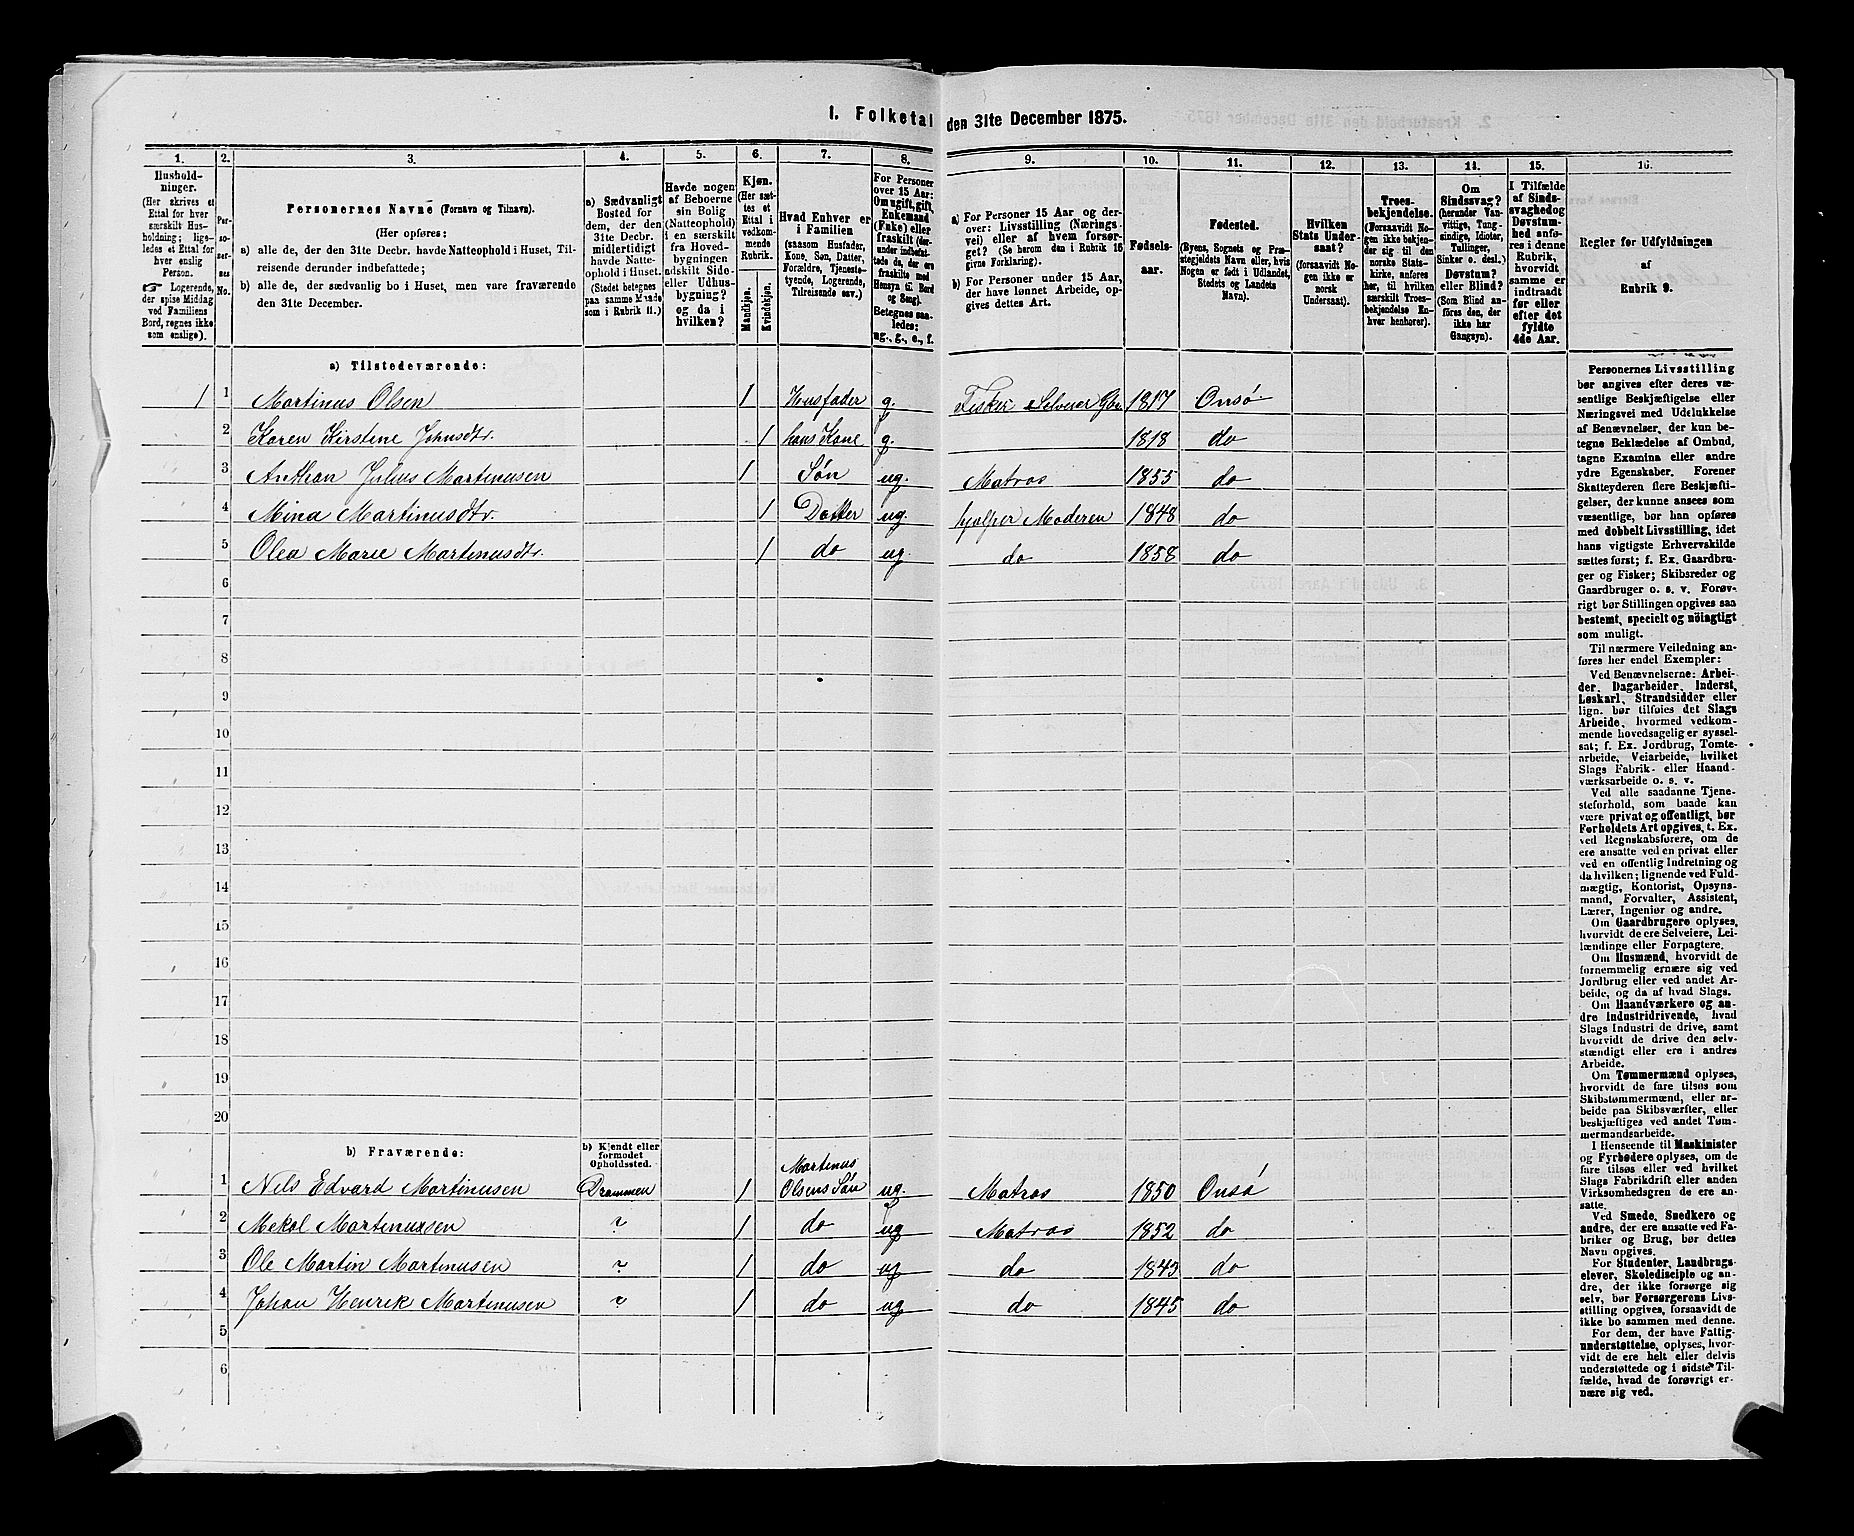 1. Folketal den 31te December 1875.
1. 2. 3. 4. 5. 6. 7. 8. 9. 10. 11. 12. 13. 14. 15. 16.
Hushold-
ninger.
(Her skrives et
Ettal for hver
særskilt Hus-
holdning; lige-
ledes et Ettal for
hver enslig
Person.
☞ Logerende,
der spise Middag
ved Familiens
Bord, regnes ikke
som enslige).
Per-
so-
ner-
nes
No.
Personernes Navne (Fornavn og Tilnavn).
(Her opføres:
a) alle de, der den 31te Decbr. havde Natteophold i Huset, Til-
reisende derunder indbefattede;
b) alle de, der sædvanlig bo i Huset, men vare fraværende
den 31te December.
a) Sædvanligt
Bosted for
dem, der den
31te Decbr.
midlertidigt
havde Natte-
ophold i Huset.
(Stedet betegnes
paa samme Maade
som i Rubrik 11.)
Havde nogen
af Beboerne
sin Bolig
(Natteophold)
i en særskilt
fra Hoved-
bygningen
adskilt Side-
eller Udhus-
bygning?
og da i
hvilken?
Kjøn.
(Her sæt-
tes et
Ettal i
vedkom-
mende
Rubrik.
Mandkjøn.
Kvindekjøn.
Hvad Enhver er
i Familien
(saasom Husfader,
Kone, Søn, Datter,
Forældre, Tjeneste-
tyende, Logerende,
Tilreisende osv.)
For Personer
over 15 Aar:
Om ugift, gift,
Enkemand
(Enke) eller
fraskilt (der-
under indbefat-
tede de, der ere
fraskilte med
Hensyn til Bord
og Seng).
Betegnes saa-
ledes:
ug., g., e., f.
a) For Personer 15 Aar og der-
over: Livsstilling (Nærings-
vei) eller af hvem forsør-
get? (Se herom den i Rubrik 16
givne Forklaring).
b) For Personer under 15 Aar,
der have lønnet Arbeide, op-
gives dettes Art.
Fødsels-
aar.
Fødested.
(Byens, Sognets og Præ-
stegjeldets Navn eller, hvis
Nogen er født i Udlandet,
Stedets og Landets
Navn).
Hvilken
Stats Under-
saat?
(forsaavidt No-
gen ikke er
norsk
Undersaat).
Troes-
bekjendelse.
(Forsaavidt No-
gen ikke bekjen-
der sig til den
norske Stats-
kirke, anføres
her, til hvilken
særskilt Troes-
bekjendelse En-
hver henhører).
Om
Sindssvag?
(herunder Van-
vittige, Tung-
sindige, Idioter,
Tullinger,
Sinker o. desl.)
Døvstum?
eller Blind?
(Som Blind an-
føres den, der
ikke har
Gangsyn).
I Tilfælde
af Sinds-
svaghed og
Døvstum-
hed anfø-
res i denne
Rubrik,
hvorvidt
samme er
indtraadt
før eller
efter det
fyldte
4de Aar.
Regler for Udfyldningen
af
Rubrik 9.
a) Tilstedeværende:
1 1 Martinus Olsen 1 Husfader g. Fisker Selveier Gbr. 1817 Onsø
2 Karen Kirstine Johnsdtr. 1 hans Kone g. 1818 do
3 Anthon Julius Martinusen 1 Søn ug. Matros 1855 do
4 Mina Martinusdtr. 1 Datter ug. hjælper Moderen 1848 do
5 Olea Marie Martinusdtr. 1 do ug do 1858 do
6
7
8
9
10
11
12
13
14
15
16
17
18
19
20
b) Fraværende:
b) Kjendt eller
formodet
Opholdssted.
1 Nels Edvard Martinusen Drammen 1 Martinus Olsens Søn ug. Matros 1850 Onsø
2 Mekal Martinusen ? 1 do ug Matros 1852 do
3 Ole Martin Martinusen ? 1 do ug do 1843 do
4 Johan Henrik Martinusen ? 1 do ug do 1845 do
5
6
Personernes Livsstilling
bør angives efter deres væ-
sentlige Beskjæftigelse eller
Næringsvei med Udelukkelse
af Benævnelser, der kun be-
tegne Beklædelse af Ombud,
tagne Examina eller andre
ydre Egenskaber. Forener
Skatteyderen flere Beskjæfti-
gelser, der kunne ansees som
væsentlige, bør han opføres
med dobbelt Livsstilling, idet
hans vigtigste Erhvervskilde
sættes først; f. Ex. Gaardbru-
ger og Fisker; Skibsreder og
Gaardbruger o. s. v. Forøv-
rigt bør Stillingen opgives saa
bestemt, specielt og nöiagtigt
som muligt.
Til nærmere Veiledning an-
føres her endel Exempler:
Ved Benævnelserne: Arbei-
der, Dagarbeider, Inderst,
Løskarl, Strandsidder eller
lign. bør tilføies det Slags
Arbeide, hvormed vedkom-
mende hovedsagelig er syssel-
sat; f. Ex. Jordbrug, Tomte-
arbeide, Veiarbeide, hvilket
Slags Fabrik- eller Haand-
værksarbeide o. s. v.
Ved alle saadanne Tjene-
steforhold, som baade kan
være privat og offentligt, bør
Forholdets Art opgives, t. Ex.
ved Regnskabsførere, om de
ere ansatte ved en privat eller
ved en offentlig Indretning og
da hvilken; lignende ved Fuld-
mægtig, Kontorist, Opsyns-
mand, Forvalter, Assistent,
Lærer, Ingeniør og andre.
Om Gaardbrugere oplyses,
hvorvidt de ere Selveiere, Lei-
lændinge eller Forpagtere.
Om Husmænd, hvorvidt de
fornemmelig ernære sig ved
Jordbrug eller ved andet Ar-
beide, og da af hvad Slags.
Om Haandværkere og an-
dre Industridrivende, hvad
Slags Industri de drive, samt
hvorvidt de drive den selv-
stændigt eller ere i andres
Arbeide.
Om Tømmermænd oplyses,
hvorvidt de fare tilsøs som
Skibstømmermænd, eller ar-
beide paa Skibsværfter, eller
beskjæftiges ved andet Tøm-
mermandsarbeide.
I Henseende til Maskinister
og Fyrbødere oplyses, om de
fare tilsøs eller ved hvilket
Slags Fabrikdrift eller anden
Virksomhedsgren de ere an-
satte.
Ved Smede, Snedkere og
andre, der ere ansatte ved Fa-
briker og Brug, bør dettes
Navn opgives.
For Studenter, Landbrugs-
elever, Skoledisciple og an-
dre, der ikke forsørge sig
selv, bør Forsørgerens Livs-
stilling opgives, forsaavidt de
ikke bo sammen med denne.
For dem, der have Fattig-
understøttelse, oplyses, hvor-
vidt de ere helt eller delvis
understøttede og i sidste Til-
fælde, hvad de forøvrigt er-
nære sig ved.